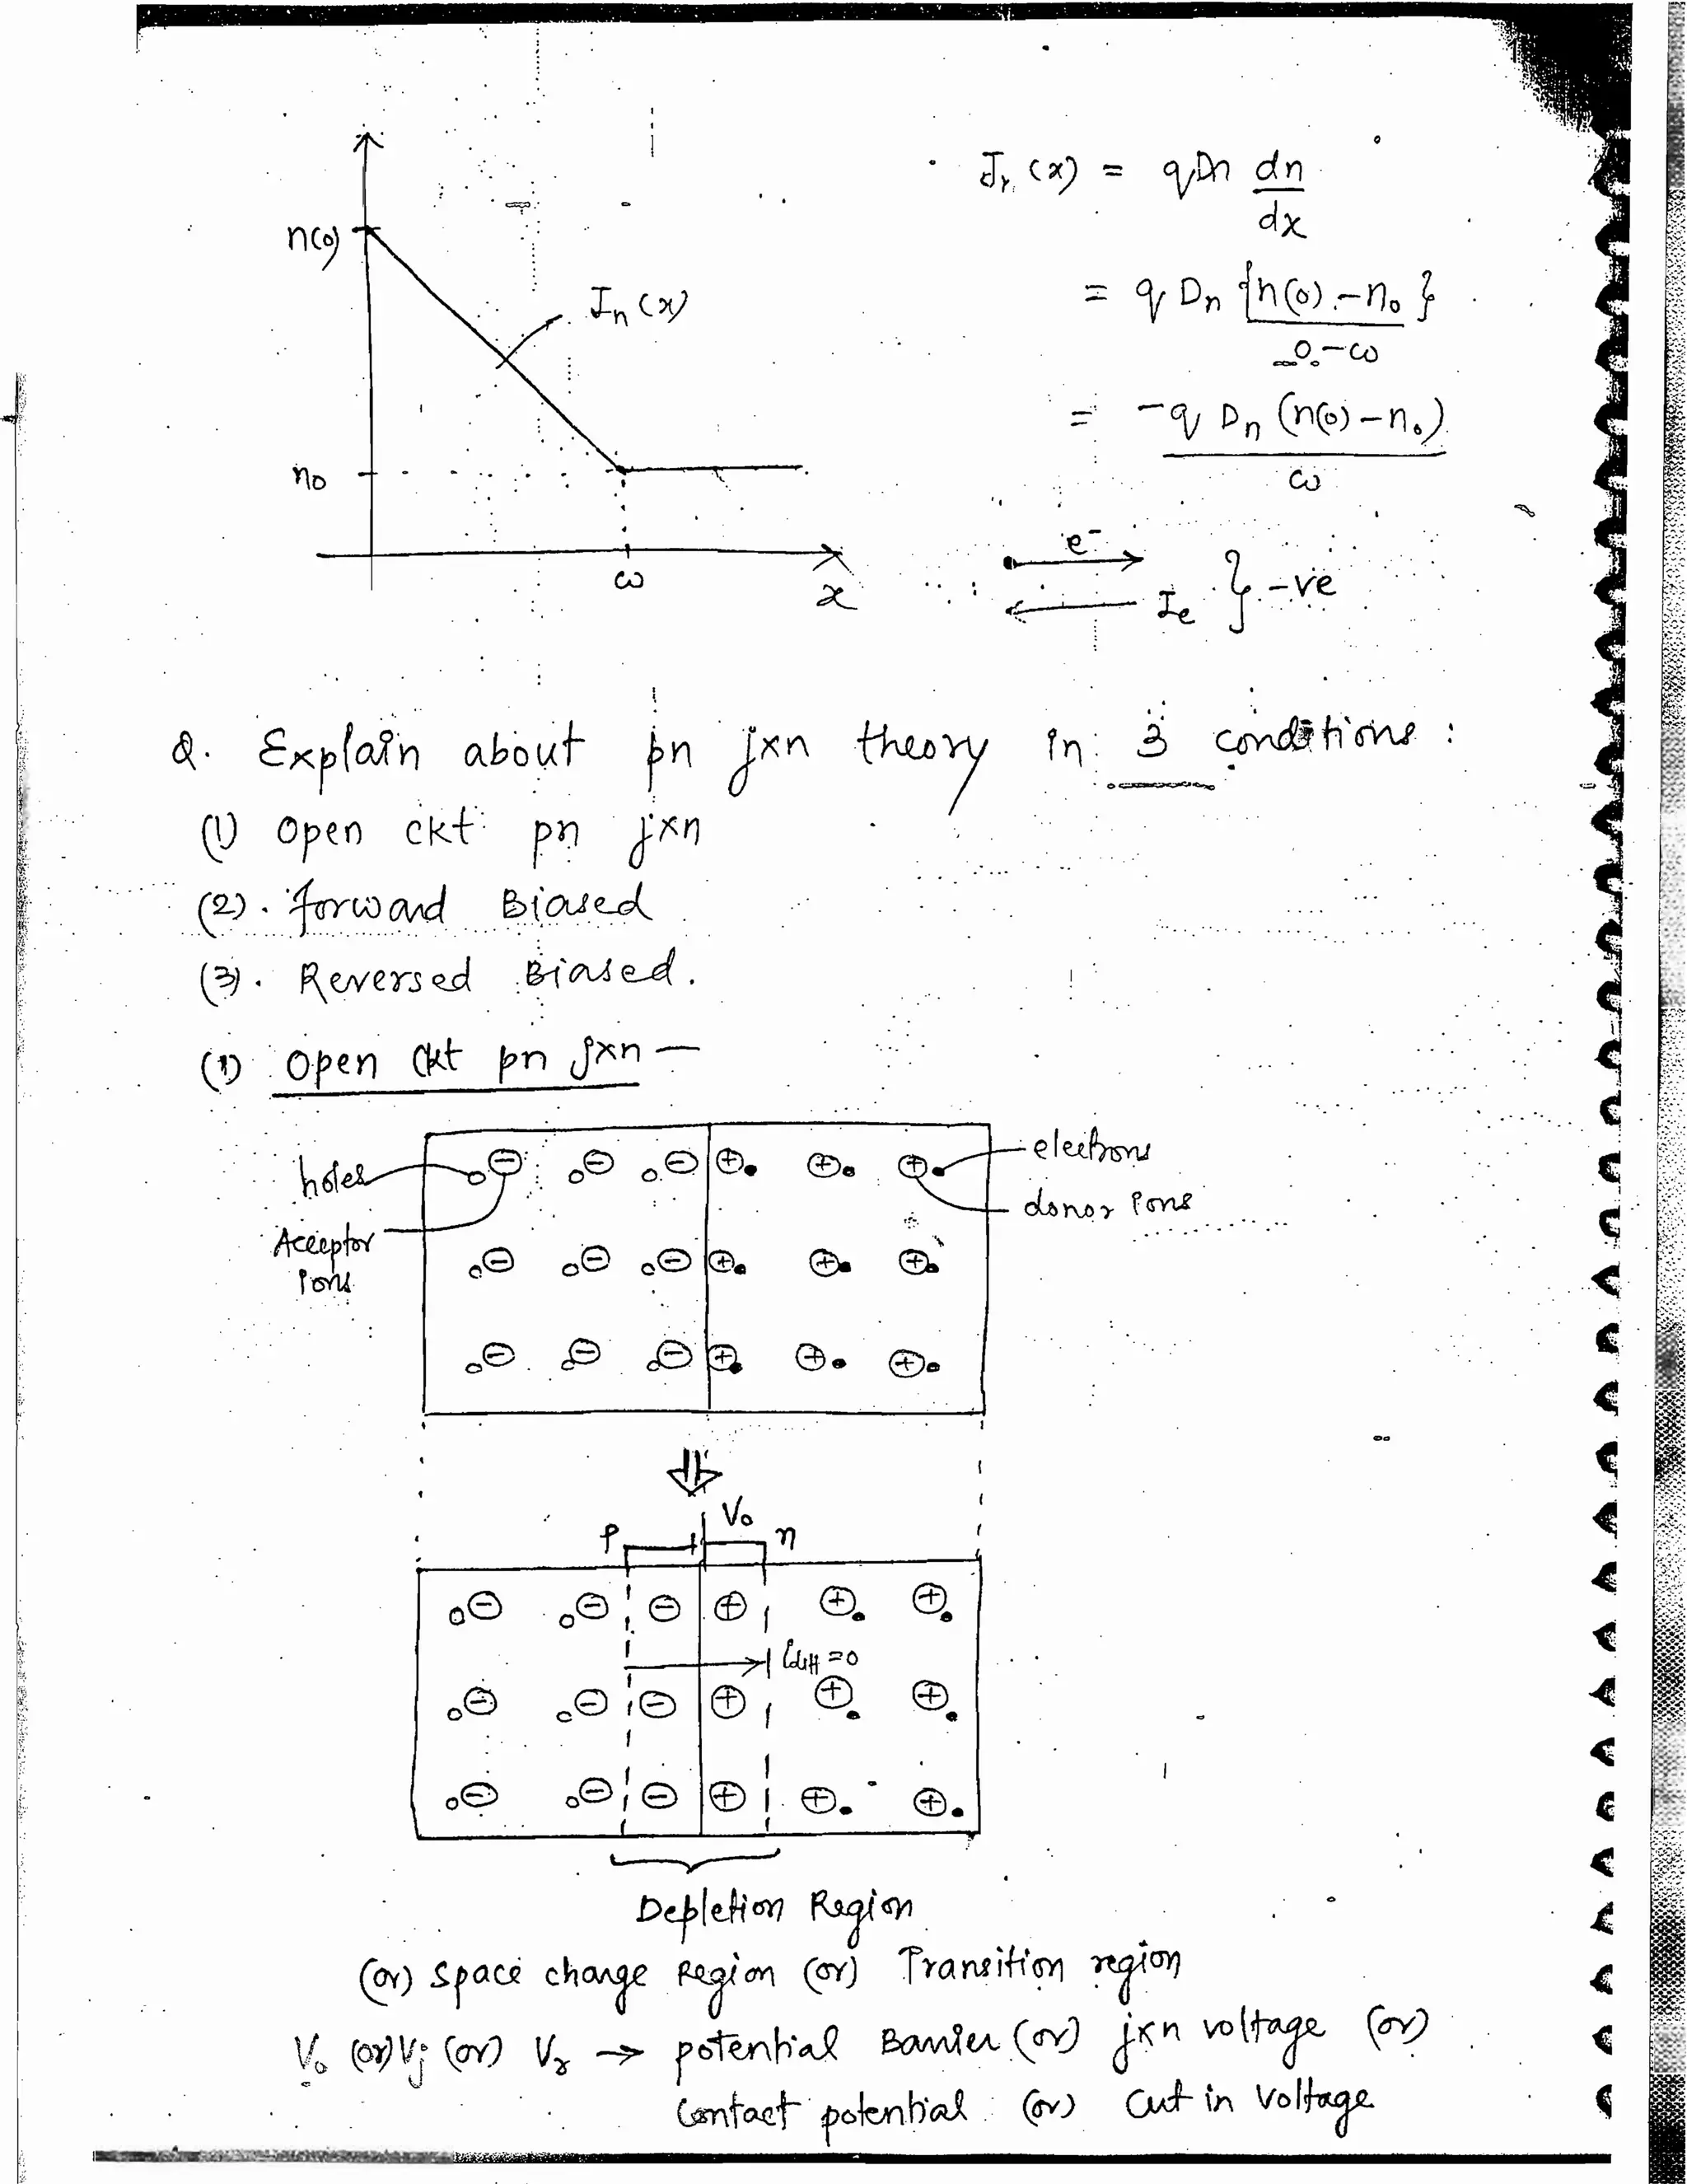 n(0)
Jn(x)
n0
ω
x
Jn(x) = qDn dn
dx
= q Dn {n(0) - n0}
0 - ω
= -q Dn (n(0) - n0)
ω
e-
Ie } -ve
Q. Explain about pn jxn theory in 3 conditions :
(1) Open ckt pn jxn
(2). forward Biased
(3). Reversed Biased.
(1) Open ckt pn jxn —
holes
Acceptor
ions
electrons
donor ions
V0
P
n
Idiff = 0
Depletion Region
(or) space charge Region (or) Transition region
V0 (or) Vj (or) Vγ → potential Barrier (or) jxn voltage (or)
Contact potential (or) Cut in Voltage